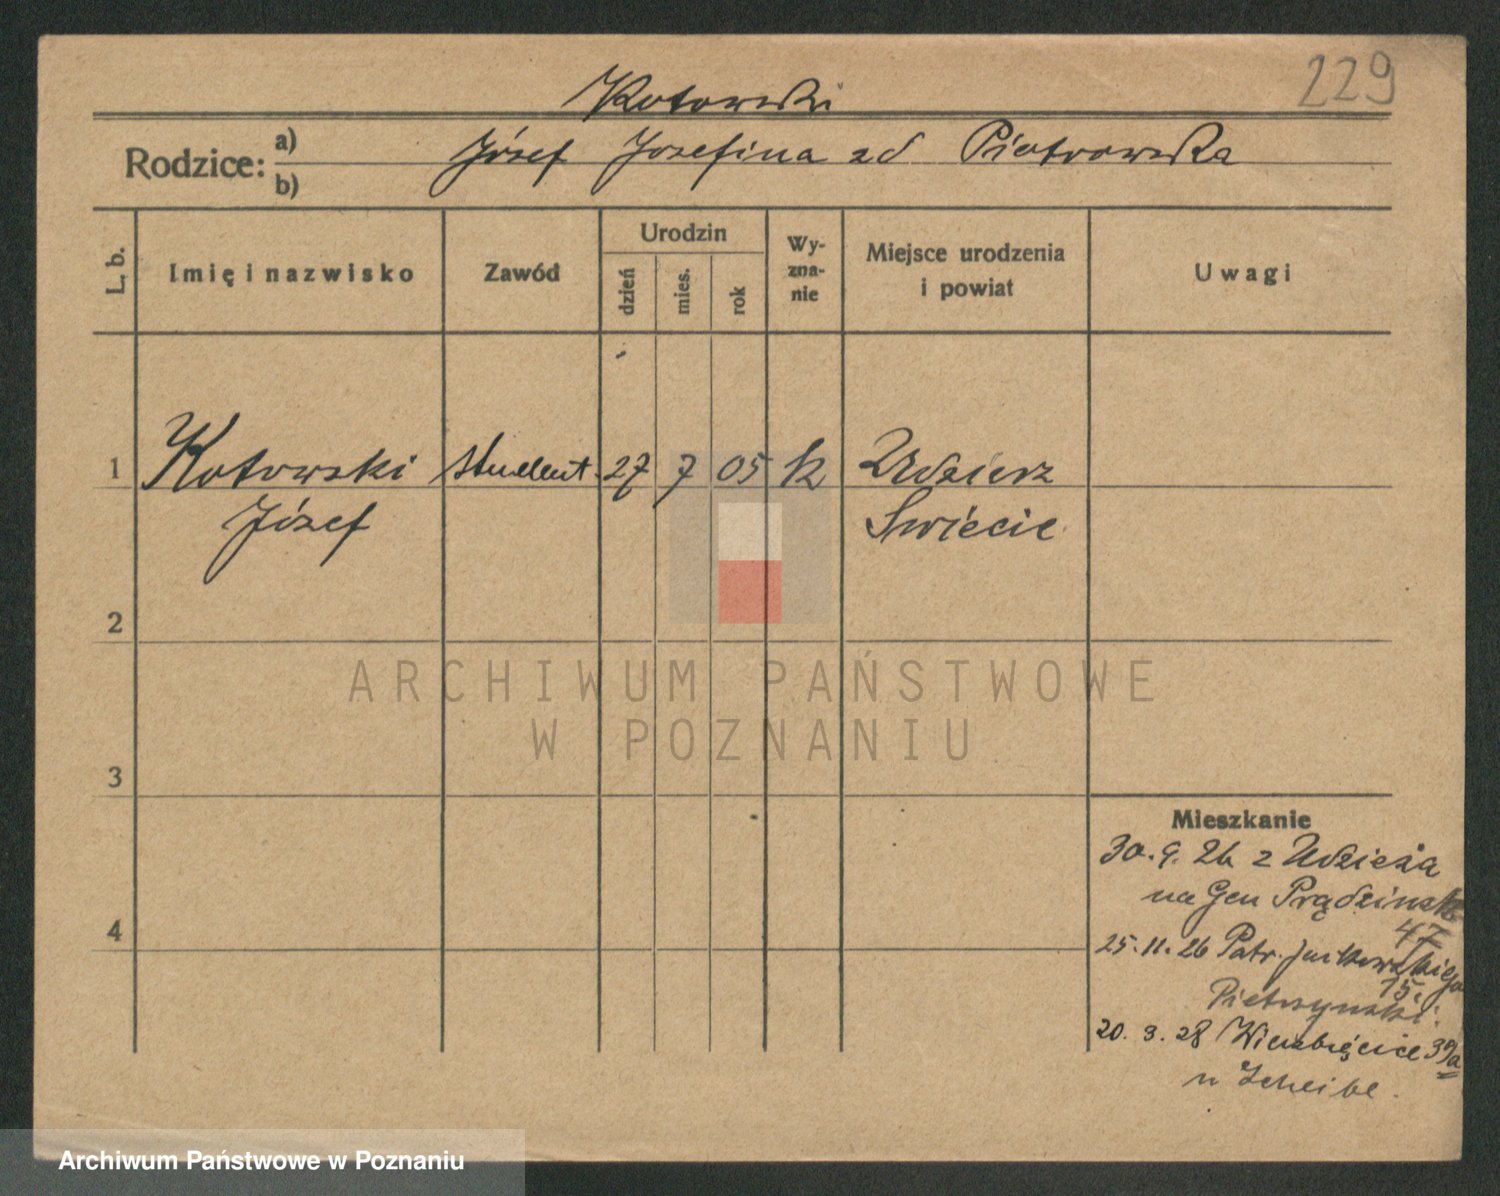 229
Kotowski
Rodzice: a) b)
Józef Jozefina zd Piotrowska
L. b.
Imię i nazwisko
Zawód
Urodzin
dzień
mies.
rok
Wy-
zna-
nie
Miejsce urodzenia
i powiat
Uwagi
1 Kotowski student 27 7 05 k Udzierz
Józef Swiécie
2
3
4
Mieszkanie
30.9.26 z Udzieża
na Gen Prądzinsk
47
25.11.26 Patr. Jackowskiego
15.
Pietrzynski.
20.3.28 Wierzbięcice 39a
u Scheibe.
ARCHIWUM PAŃSTWOWE
W POZNANIU
Archiwum Państwowe w Poznaniu